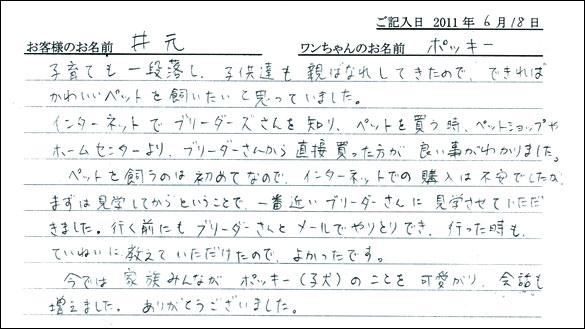 ご記入日 2011年 6月18日
お客様のお名前 井元 ワンちゃんのお名前 ポッキー
子育ても一段落し、子供達も親ばなれしてきたので、できれば
かわいいペットを飼いたいと思っていました。
インターネットでブリーダーズさんを知り、ペットを買う時、ペットショップや
ホームセンターより、ブリーダーさんから直接買った方が良い事がわかりました。
ペットを飼うのは初めてなので、インターネットでの購入は不安でしたが
まずは見学してからということで、一番近いブリーダーさんに見学させていただ
きました。行く前にもブリーダーさんとメールでやりとりでき、行った時も、
ていねいに教えていただけたので、よかったです。
今では家族みんながポッキー(子犬)のことを可愛がり、会話も
増えました。ありがとうございました。